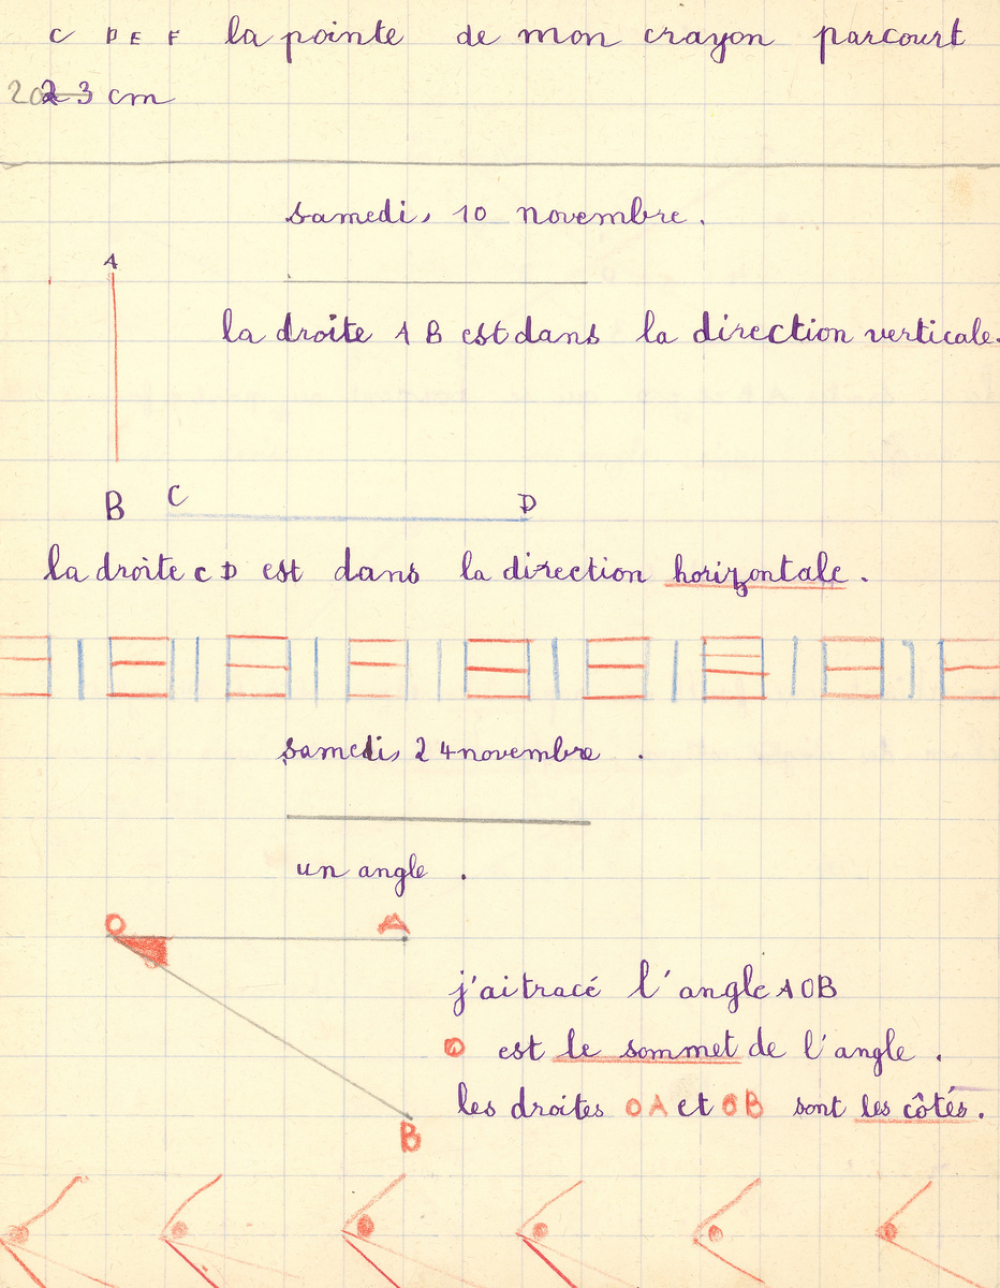 C D E F la pointe de mon crayon parcourt
23 cm
samedi, 10 novembre.
A
la droite A B est dans la direction verticale.
B C D
la droite C D est dans la direction horizontale.
samedi, 24 novembre.
un angle.
O A
j'ai tracé l'angle AOB
O est le sommet de l'angle.
les droites OA et OB sont les côtés.
B